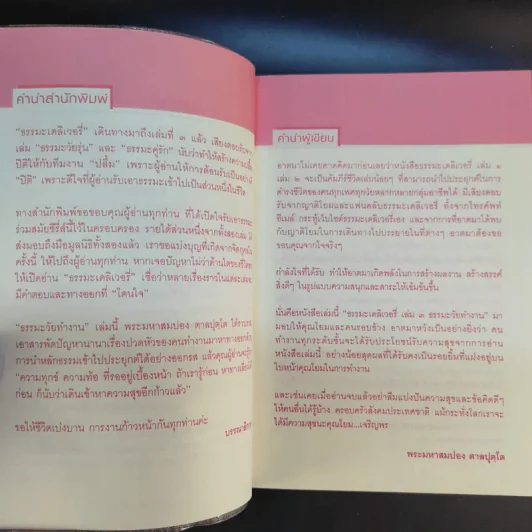 คำนำสำนักพิมพ์
"ธรรมะเดลิเวอรี่" เดินทางมาถึงเล่มที่ ๓ แล้ว เสียงตอบรับจาก
เล่ม "ธรรมะวัยรุ่น" และ "ธรรมะคู่รัก" นับว่าทำให้สร้างความ
ปีติให้กับทีมงาน "ปลื้ม" เพราะผู้อ่านให้การต้อนรับเป็นอย่างดี
"ปีติ" เพราะดีใจที่ผู้อ่านรับเอาธรรมะเข้าไปเป็นส่วนหนึ่งในชีวิต
ทางสำนักพิมพ์ขอขอบคุณผู้อ่านทุกท่าน ที่ได้เปิดใจรับเอาธรรมะ
ร่วมสมัยซีรี่ส์นี้ไว้ในครอบครอง รายได้ส่วนหนึ่งจากทั้งสองเล่ม
ส่งมอบถึงมือมูลนิธิทั้งสองแล้ว เราขอแบ่งบุญที่เกิดจากจิตกุศล
ครั้งนี้ ให้ไปถึงผู้อ่านทุกท่าน หากเจอปัญหาไม่ว่าด้านใดของชีวิต
ให้เปิดอ่าน "ธรรมะเดลิเวอรี่" เชื่อว่าหลายเรื่องราวในแต่ละเล่ม
มีคำตอบและทางออกที่ "โดนใจ"
"ธรรมะวัยทำงาน" เล่มนี้ พระมหาสมปอง ตาลปุตฺโต ได้รวบรวม
เอาสารพัดปัญหานานาเรื่องปวดหัวของคนทำงานมาหาทางออก
การนำหลักธรรมเข้าไปประยุกต์ได้อย่างออกรส แล้วคุณผู้อ่านจะรู้ว่า
"ความทุกข์ ความท้อ ที่รออยู่เบื้องหน้า ถ้าเรารู้ก่อน หาทางเลี่ยงได้
ก่อน ก็นับว่าเดินเข้าหาความสุขอีกก้าวแล้ว"
ขอให้ชีวิตเบ่งบาน การงานก้าวหน้ากันทุกท่านค่ะ
บรรณาธิการ
คำนำผู้เขียน
อาตมาไม่เคยคาดคิดมาก่อนเลยว่าหนังสือธรรมะเดลิเวอรี่ เล่ม ๑
เล่ม ๒ จะเป็นคัมภีร์ชีวิตเล่มน้อยๆ ที่สามารถนำไปประยุกต์ในการ
ดำรงชีวิตของคนทุกเพศทุกวัยหลากหลายกลุ่มอาชีพได้ มีเสียงตอบ
รับจากญาติโยมและแฟนคลับธรรมะเดลิเวอรี่ ทั้งจากโทรศัพท์
อีเมล์ กระทู้เว็บไซต์ธรรมะเดลิเวอรี่เอง และจากการที่อาตมาได้พบ
กับญาติโยมในการเดินทางไปบรรยายในที่ต่างๆ อาตมาต้องขอ
ขอบคุณจากใจจริงๆ
กำลังใจที่ได้รับ ทำให้อาตมาเกิดพลังในการสร้างผลงาน สร้างสรรค์
สิ่งดีๆ ในรูปแบบความสนุกและสาระให้เข้มข้นขึ้น
นั่นคือหนังสือเล่มนี้ "ธรรมะเดลิเวอรี่ เล่ม ๓ ธรรมะวัยทำงาน" มา
มอบให้คุณโยมและคนรอบข้าง อาตมาหวังเป็นอย่างยิ่งว่า คน
ทำงานทุกระดับชั้นจะได้รับประโยชน์รับความสุขจากการอ่าน
หนังสือเล่มนี้ อย่างน้อยสุดผลที่ได้รับคงเป็นรอยยิ้มที่แฝงอยู่บน
ใบหน้าคุณโยมในการทำงาน
และเช่นเคยเมื่ออ่านจบแล้วอย่าลืมแบ่งปันความสุขและข้อคิดดีๆ
ให้คนอื่นได้รู้บ้าง ครอบครัวสังคมประเทศชาติ แม้กระทั่งโลกเราจะ
ได้มีความสุขนะคุณโยม...เจริญพร
พระมหาสมปอง ตาลปุตฺโต